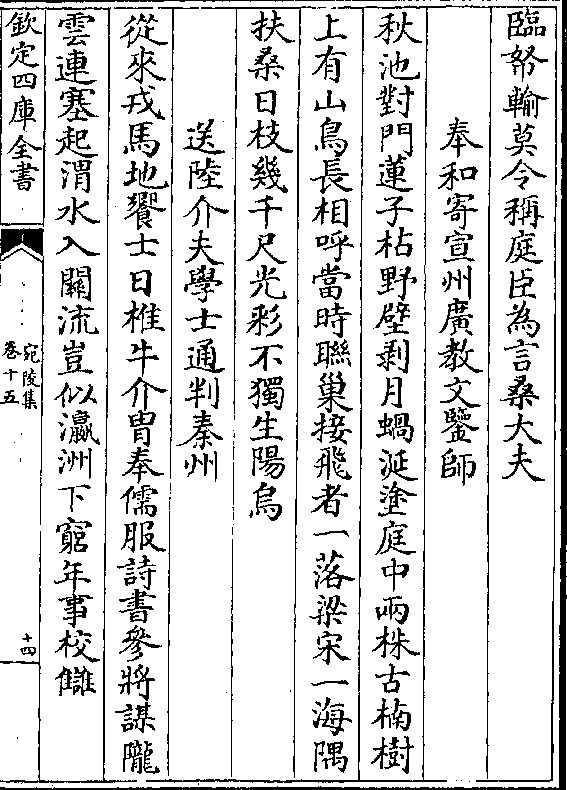 臨帑輸莫令稱庭臣為言桑大夫
奉和寄宣州廣教文鑒師
秋池對門蓮子枯野壁剥月蝸涎塗庭中兩株古楠樹
上有山鳥長相呼當時聯巢接飛者一落梁宋一海隅
扶桑日枝幾千尺光彩不獨生陽烏
送陸介夫學士通判秦州
從來戎馬地饗士日椎牛介胄奉儒服詩書參將謀隴
雲連塞起渭水入關流豈似瀛洲下窮年事校讎
欽定四庫全書
宛陵集
卷十五
十四